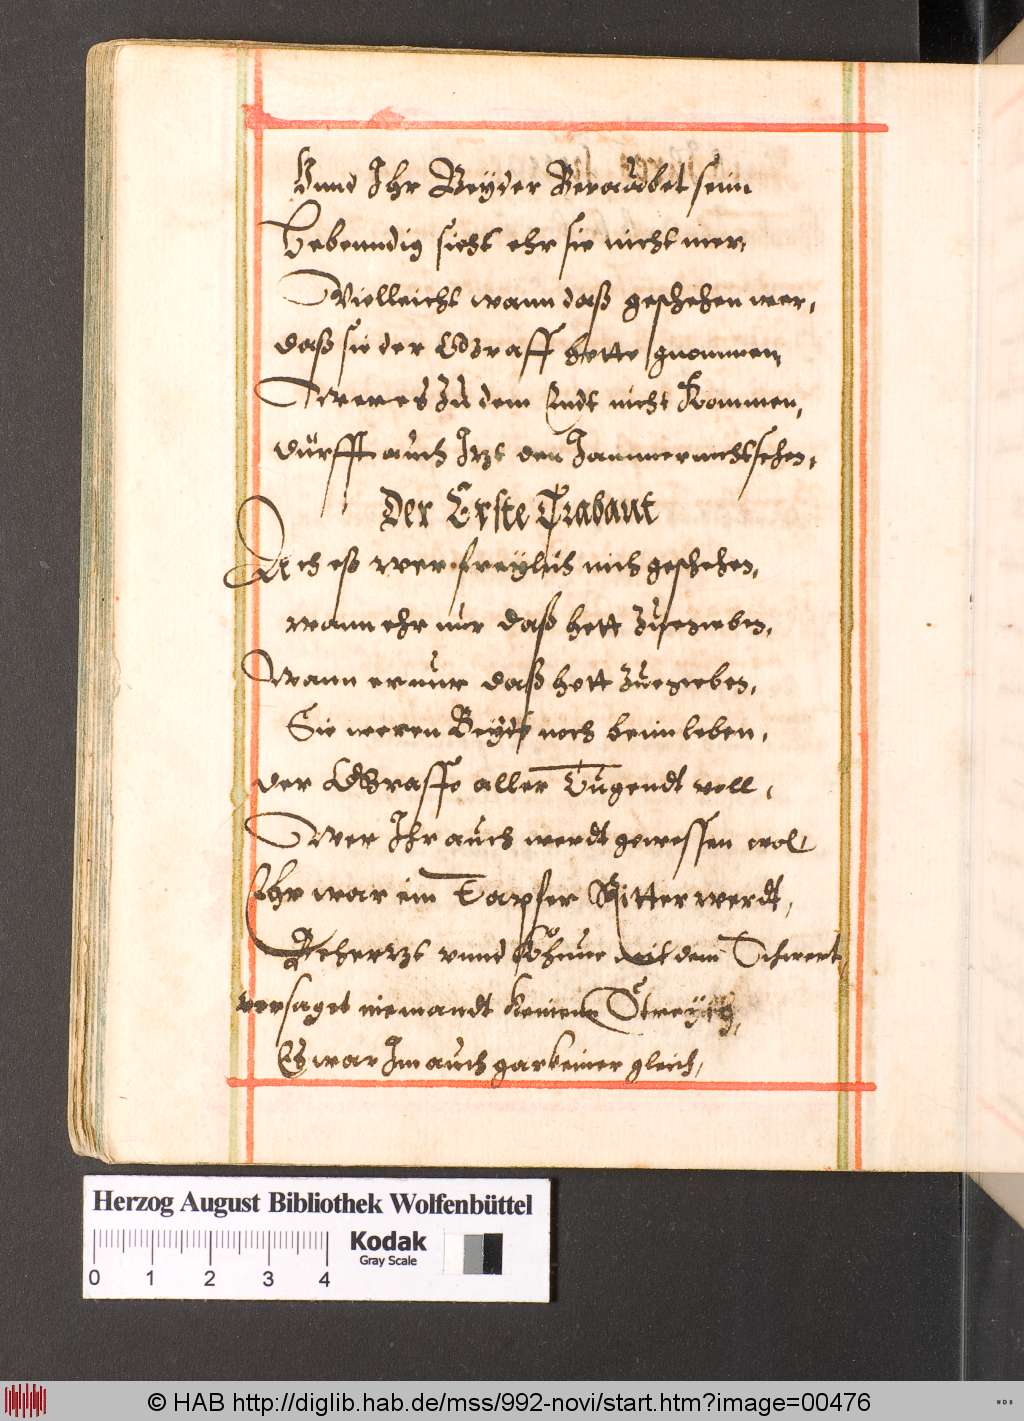 Vnnd Ihr Beyder Beraubet sein
Lebenndig sicht ehr sie nicht mer,
Villeicht wann daß geschehen wer,
daß sie der Graff hette gnommen,
Wer es zu dem Endt nicht Kommen,
dürfft auch Itzt den Jammer nicht sehen,
Der Erste Trabant
Ach eß wer freylich nich geschehen,
wann ehr nur daß hett zu geben,
Wann er nur daß hett zu geben,
Sie weren Beyde noch beim leben,
der Graffe aller Tugendt voll,
Wer Ihr auch werdt gewessen wol,
Ehr war ein Tapfer Ritter werdt,
Behertzt vnnd Köhnne mit dem Schwert,
versaget niemandt keinenn Streych,
Es war Im auch gar keiner gleich,
Herzog August Bibliothek Wolfenbüttel
Kodak
Gray Scale
0 1 2 3 4
© HAB http://diglib.hab.de/mss/992-novi/start.htm?image=00476